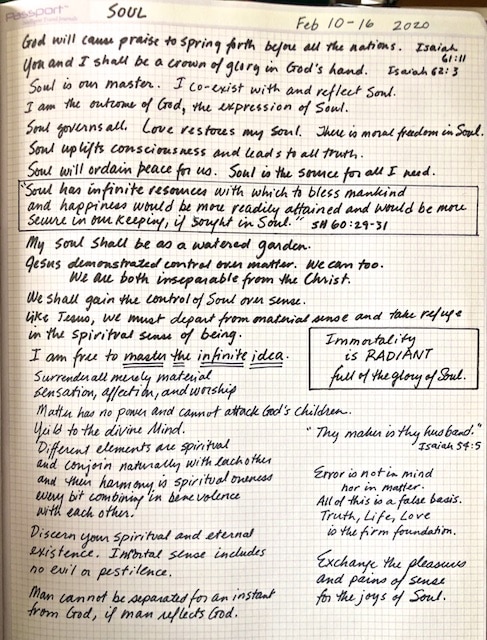 Passport
SOUL
Feb 10-16 2020
God will cause praise to spring forth before all the nations. Isaiah 61:11
You and I shall be a crown of glory in God's hand. Isaiah 62:3
Soul is our master. I co-exist with and reflect Soul.
I am the outcome of God, the expression of Soul.
Soul governs all. Love restores my Soul. There is moral freedom in Soul.
Soul uplifts consciousness and leads to all truth.
Soul will ordain peace for us. Soul is the source for all I need.
"Soul has infinite resources with which to bless mankind
and happiness would be more readily attained and would be more
secure in our keeping, if sought in Soul." SH 60:29-31
My Soul shall be as a watered garden.
Jesus demonstrated control over matter. We can too.
We are both inseparable from the Christ.
We shall gain the control of Soul over sense.
Like Jesus, we must depart from material sense and take refuge
in the spiritual sense of being.
I am free to master the infinite idea.
Immortality
is RADIANT
full of the glory of Soul.
Surrender all merely material
sensation, affection, and worship
Matter has no power and cannot attack God's children.
Yield to the divine Mind.
Different elements are spiritual
and conjoin naturally with each other
and their harmony is spiritual oneness
every bit combining in benevolence
with each other.
Discern your spiritual and eternal
existence. Immortal sense includes
no evil or pestilence.
Man cannot be separated for an instant
from God, if man reflects God.
"Thy maker is thy husband."
Isaiah 54:5
Error is not in mind
nor in matter.
All of this is a false basis.
Truth, Life, Love
is the firm foundation.
Exchange the pleasures
and pains of sense
for the joys of Soul.